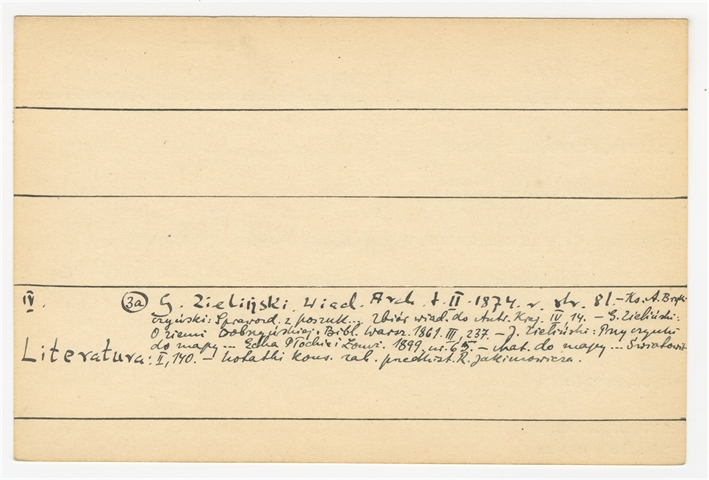 IV. (3a) G. Zieliński. Wiad. Arch. t. II. 1874. r. str. 81. – Ks. A. Bryk-
czyński: Sprawozd. z poszuk... Zbiór wiad. do Antr. Kraj. IV 14. – G. Zieliński:
O ziemi Dobrzyńskiej. Bibl. Warsz. 1861. III, 237. – J. Zieliński: Przyczynki
do mapy... Echa Płockie i Łomż. 1899. nr. 65. – Mat. do mapy... Światowit
Literatura: II, 140. – Notatki kons. zab. predhist. R. Jakimowicza.